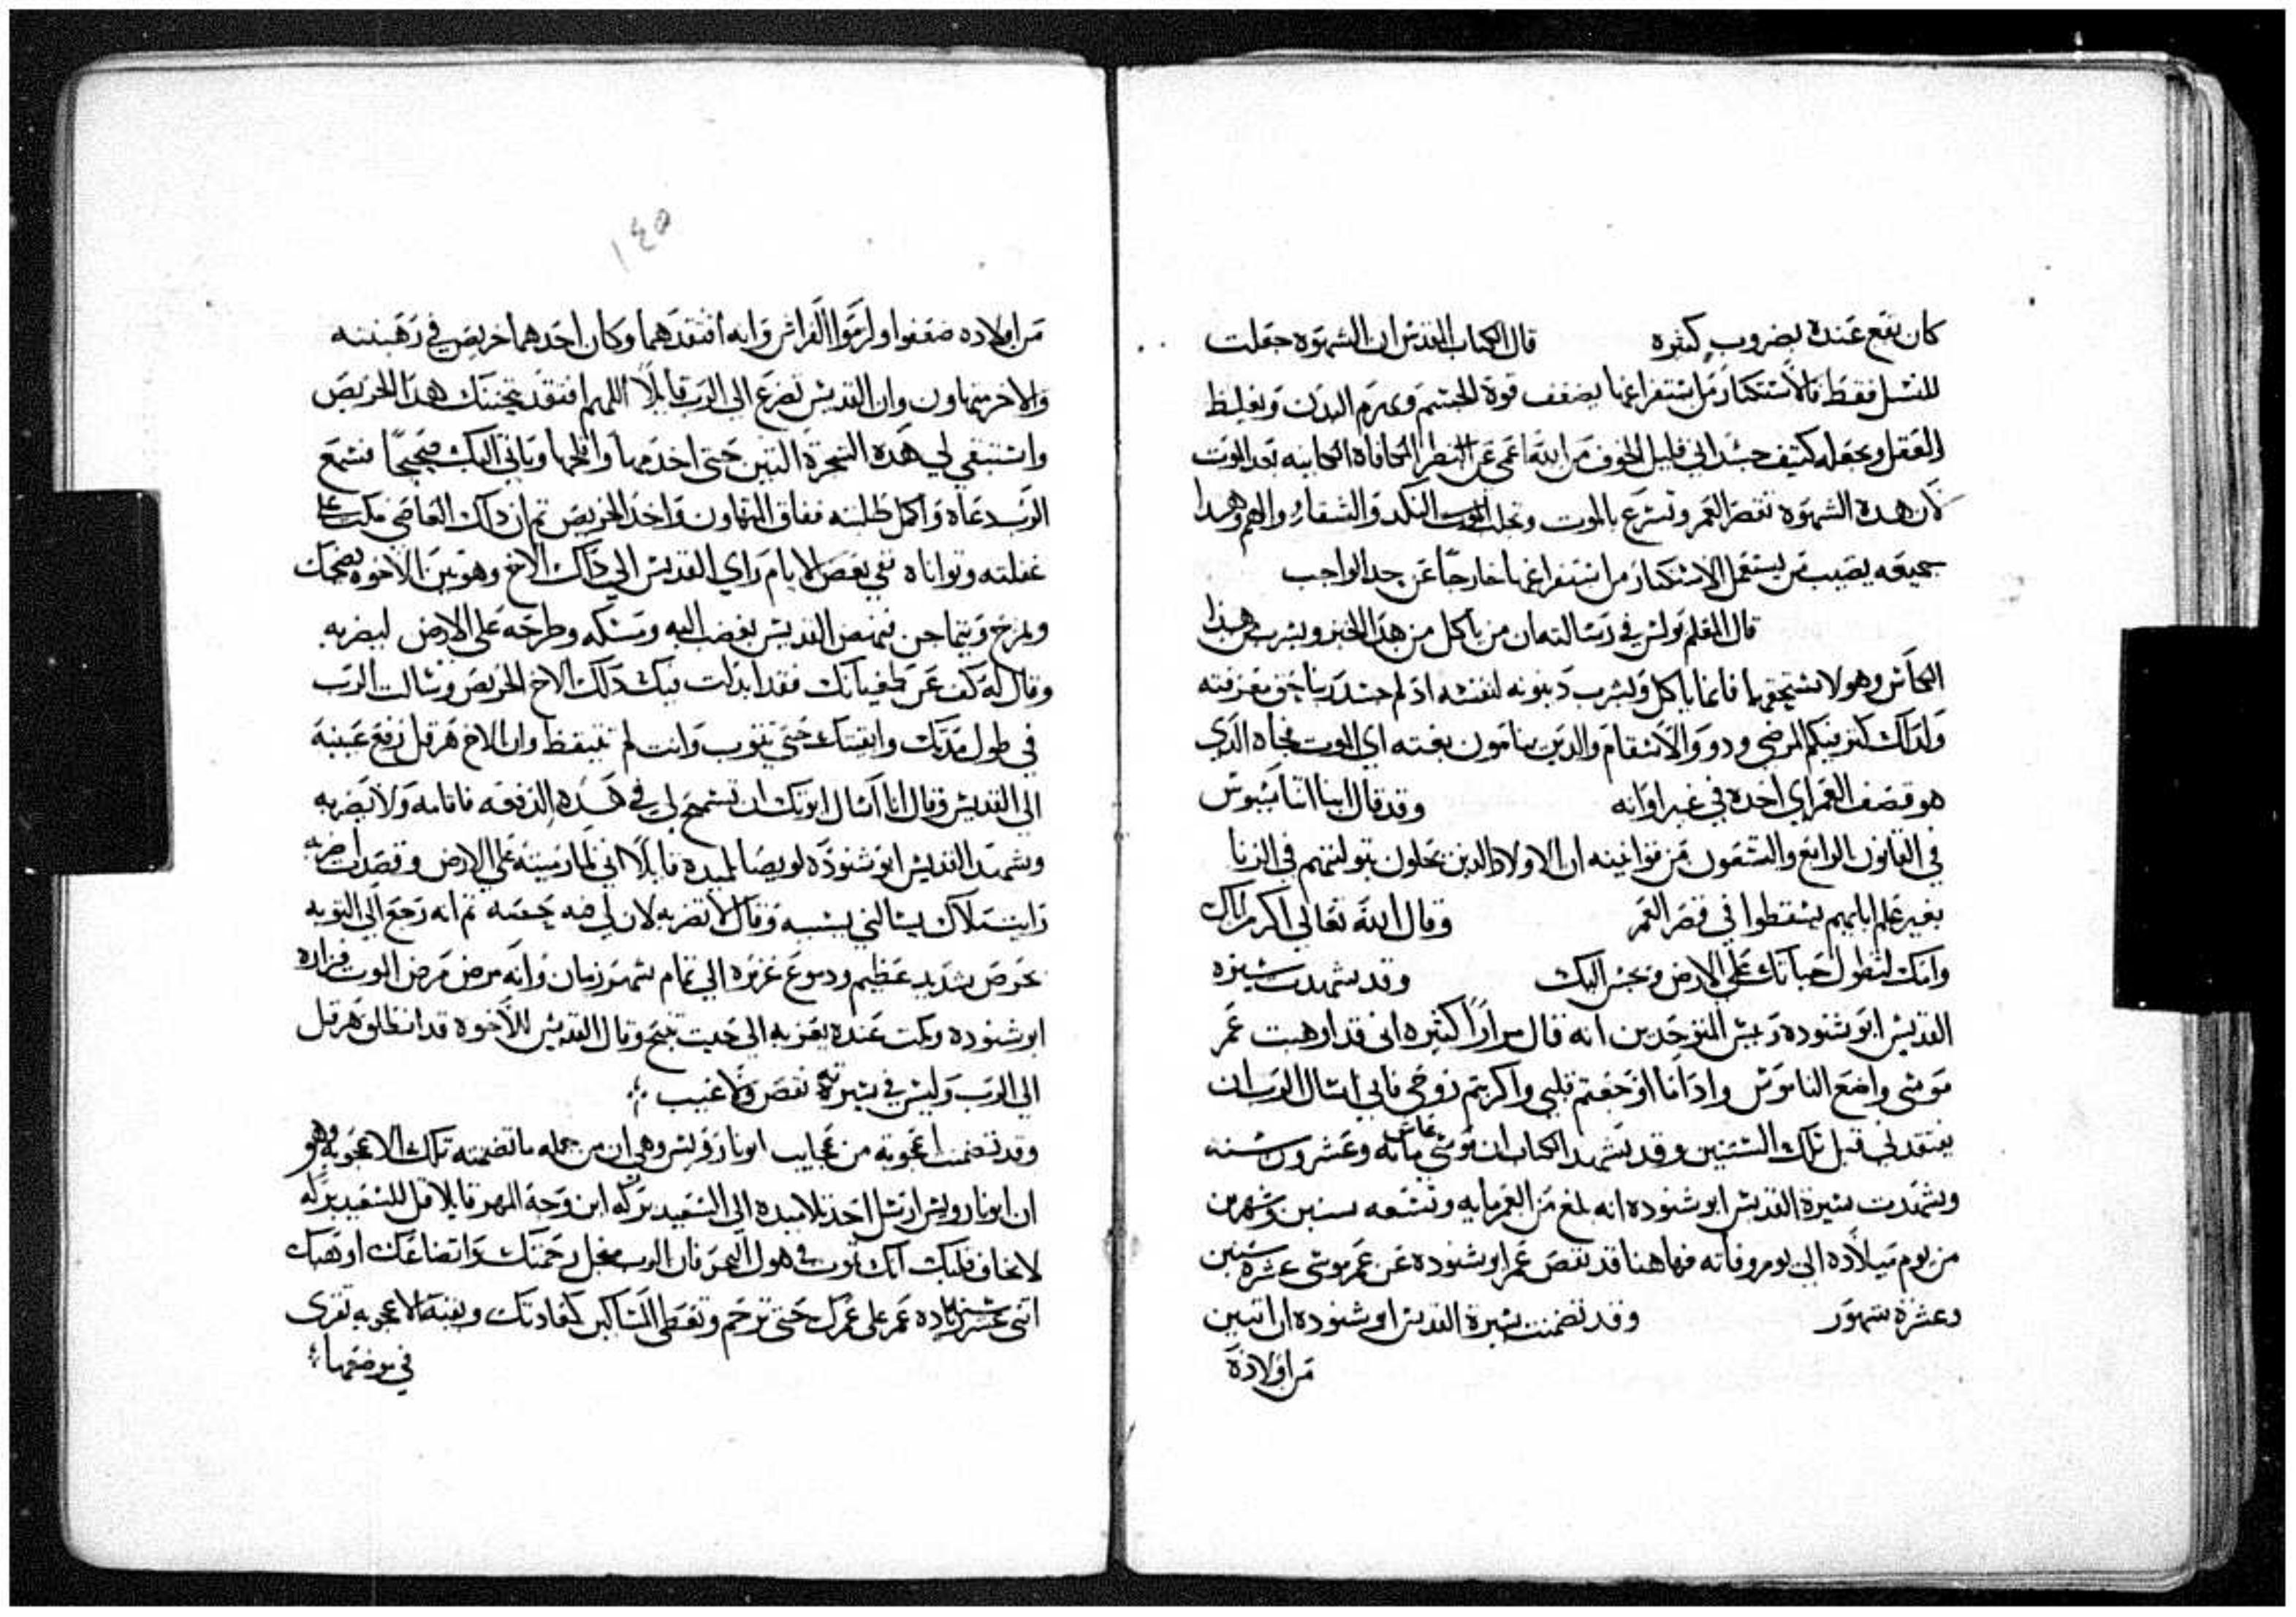 كان يقع عنده بضروب كثيره قال الكتاب المقدس ان الشهوه جعلت
للنسل فقط فالاستكثار من استفراغها يضعف قوة الجسم ويهرم البدن ويغليظ
العقل ويجعله كثيف جسداني قليل الخوف من الله اعمى عن النظر المجافاه الحابيه بعد الموت
لان هده الشهوه تقصر العمر وتسرع بالموت وتجلب النكد والشقا والهم وهدا
جميعه يصيب من يستعمل الاستكثار من استفراغها خارجا عن حد الواجب
قال المعلم بولس في رسالته ان من ياكل من هدا الخبز ويشرب من هدا
الكاس وهو لا يستحقها فانما ياكل ويشرب دينونه لنفسه اد لم جسد ربنا حق معرفته
ولداك كثر فيكم المرضي ودوو الاسقام والدين ينامون بغته اي الموت فجاه الدي
هو قصف العمر اي اخده في غير اوانه وقد قال ابينا اتناسيوس
في القانون الرابع والتسعون من قوانينه ان الاولاد الدين يحلون بتوليتهم في الزنا
بغير علم ابايهم يسقطوا في قصر العمر وقال الله تعالي اكرم اباك
وامك لتطول حياتك علي الارض ويحسن اليك وقد شهدت سيرة
القديس ابو شنوده رييس المتوحدين انه قال مرارا كثيره اني قد اوهبت عمر
موسي واضع الناموس وادا انا اوجعتم قلبي واكربتم روحي فاني اسال الرب ان
يفتقدني قبل تلك السنين وقد يشهد الكتاب ان موسي عاش مايه وعشرون سنه
وشهدت سيرة القديس ابو شنوده انه بلغ من العمر مايه وتسعه سنين وشهرين
من يوم ميلاده الي يوم وفاته فها هنا قد نقص عمر ابو شنوده عن عمر موسي عشرة سنين
وعشرة شهور وقد تضمنت سيرة القديس ابو شنوده ان اتنين
من اولاده
١٤٥
من اولاده ضعفوا ولزموا الفراش وانه افتقدهما وكان احدهما حريص في رهبنته
والاخر متهاون وان القديس تضرع الي الرب قايلا اللهم افتقد بتحننك هدا الحريص
واستبقي لي هده الشجرة التين حتي اخدمها وافلحها وياتي اليك صحيحا فسمع
الرب دعاه واكمل طلبته ففاق المتهاون واخد الحريص تم ان دلك العاصي مكت علي
غفلته وتواناه ففي بعض الايام راي القديس الي داك الاخ وهو بين الاخوه يضحك
ويمزح ويتماجن فنهض القديس بغضب اليه ومسكه وطرحه علي الارض ليضربه
وقال له كف عن طغيانك فقد ابدلت فيك دلك الاخ الحريص وسالت الرب
في طول مدتك وابقيتك حتي تتوب وانت لم تتيقظ وان الاخ هرقل رفع عينيه
الي القديس وقال انا اسال ابوتك ان تسمح لي في هده الدفعه فاقامه ولا يضربه
وشهد القديس ابو شنوده لويصا تلميده قايلا اني لما رميته علي الارض وقصدت اضربه
رايت ملاك يسالني بسببه وقال لا تضربه لان لي فيه حصه تم انه رجع الي التوبه
بحرص شديد عظيم ودموع غزيره الي تمام شهور زمان وانه مرض مرض الموت فزاره
ابو شنوده ومكت عنده يعزيه الي حيت تنيح وقال القديس للاخوه قد انطلق هرقل
الي الرب وليس في سيرته نقص ولا عيب
وقد تضمنت اعجوبه من عجايب ابونا رويس وهي ان من جمله ما تضمنته تلك الاعجوبه هو
ان ابونا رويس ارسل احد تلاميده الي السعيد بركه ابن وجه المهر قايلا قل للسعيد بركه
لا يخاف قلبك انك تموت في هول البحر فان الرب من اجل رحمتك واتضاعك اوهبك
اتني عشر سنه زياده عمر علي عمرك حتي ترحم وتعطي المساكين كعادتك وبقية الاعجوبه تقري
في موضعها